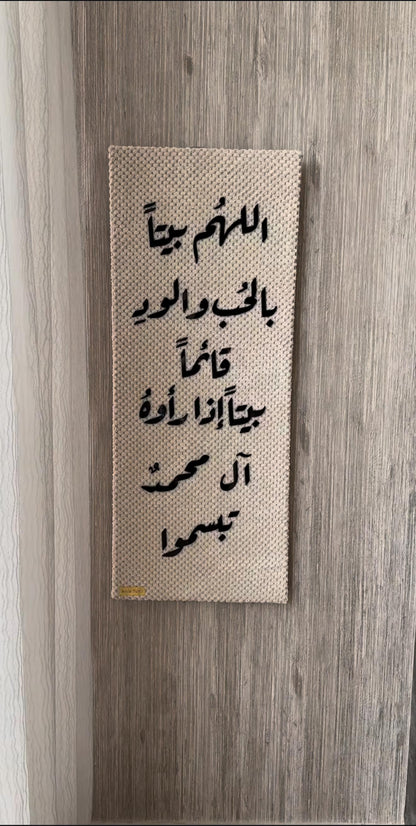 اللهُم بيتاً
بالحُب والودِ
قائماً
بيتاً إذا رأوهُ
آل محمدٌ
تبسموا